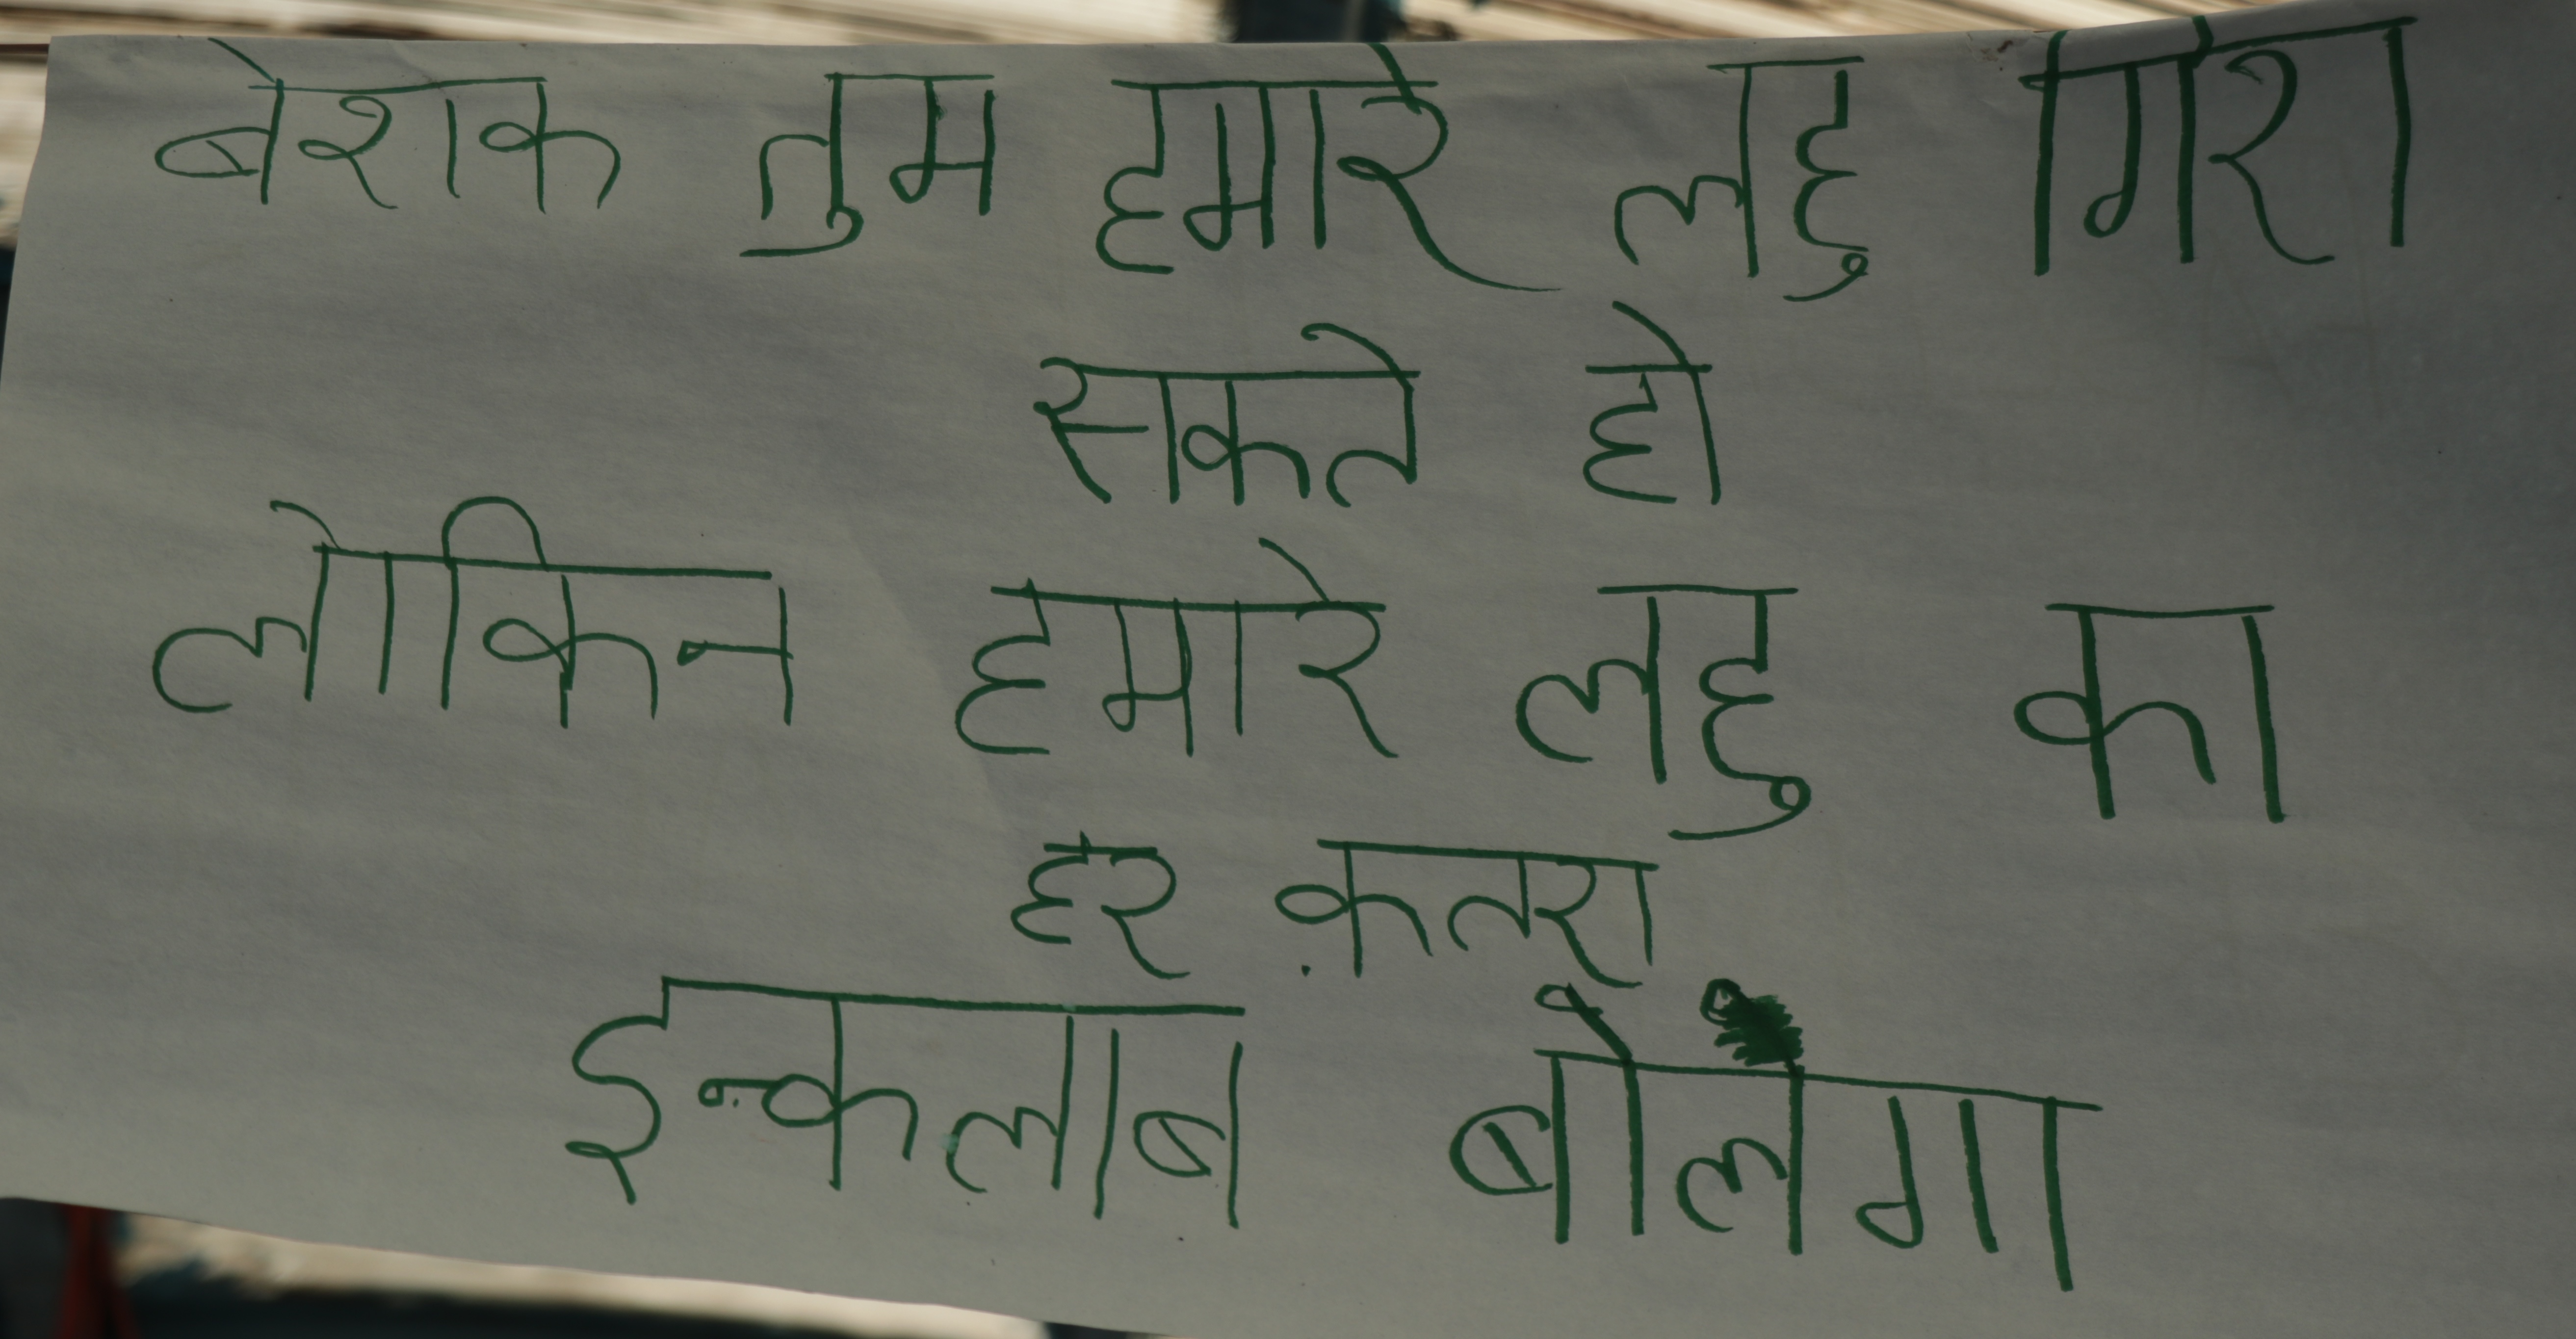 बेशक तुम हमारे लहु गिरा
सकते हो
लोकिन हमारे लहु का
हर क़तरा
इन्कलाब बोलेगा